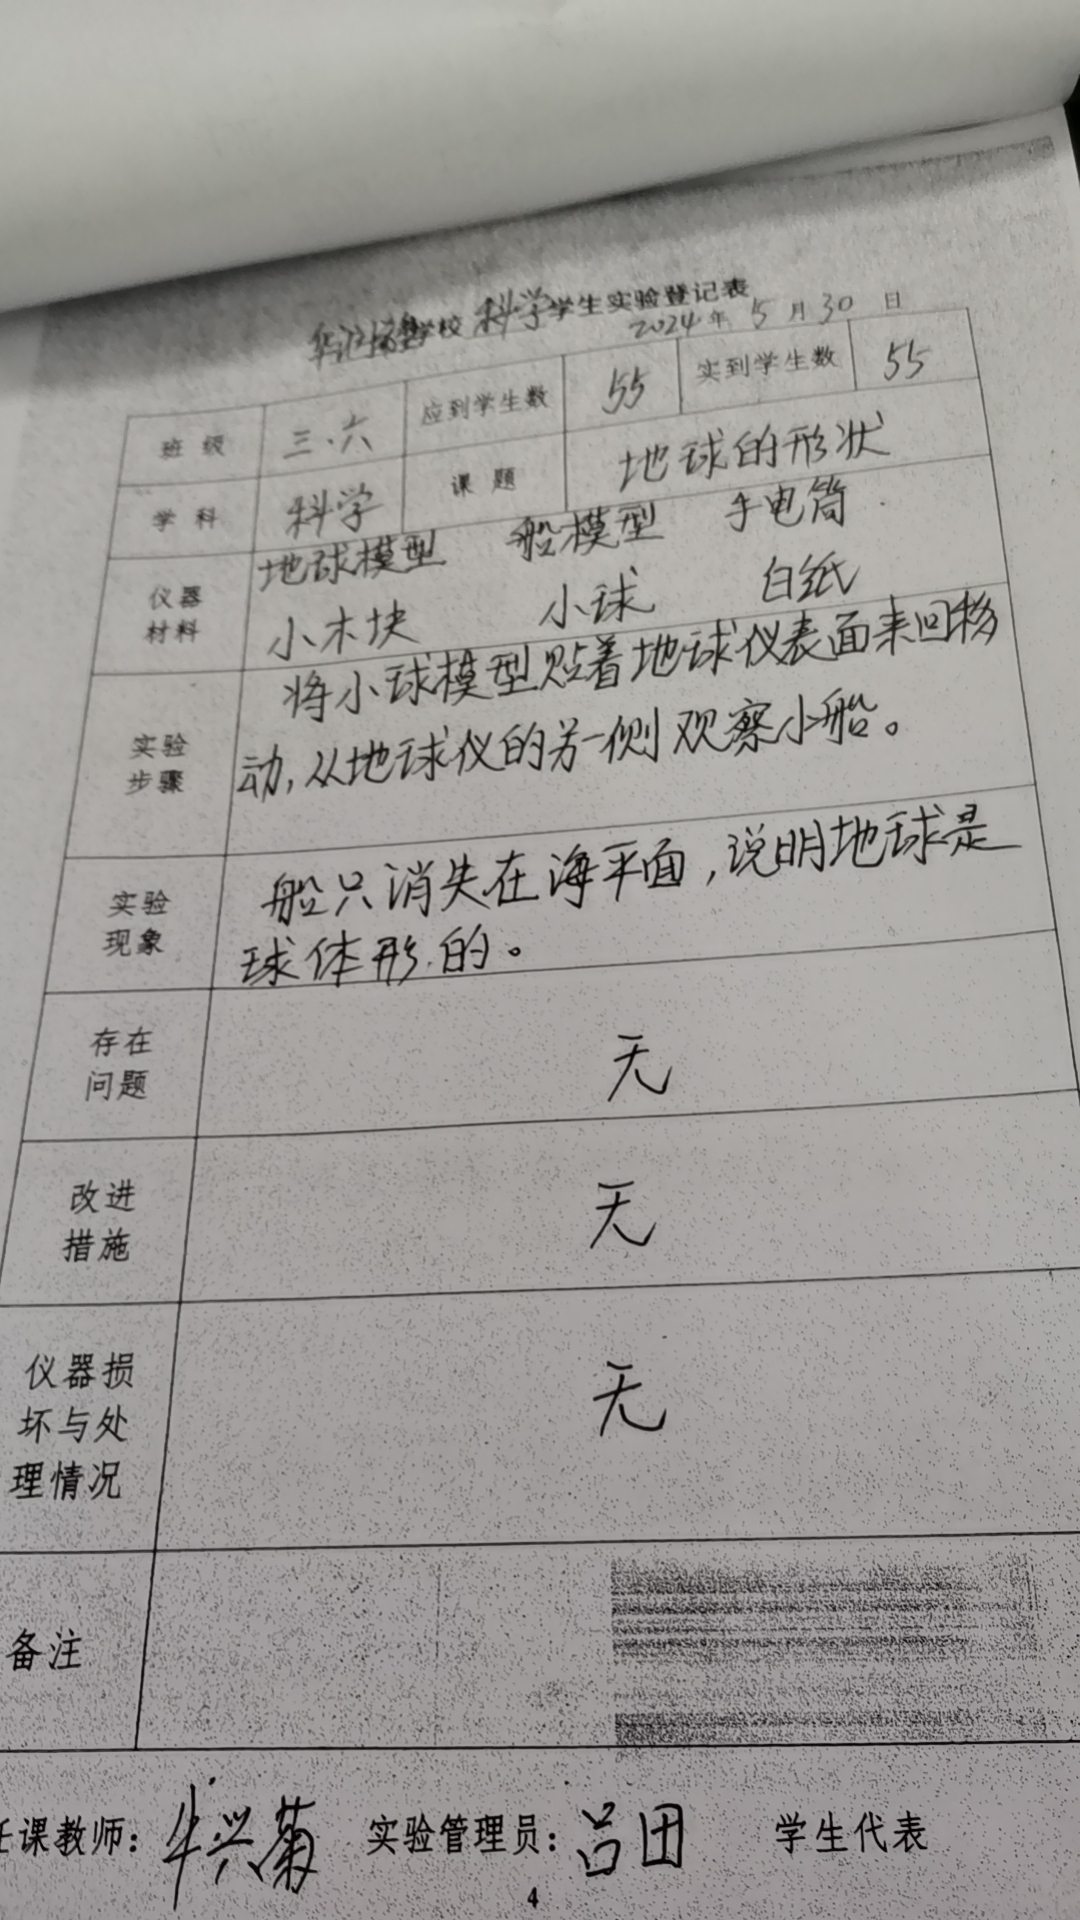 学校 科学学生实验登记表
2024年 5月30日
班级 三.六 应到学生数 55 实到学生数 55
学科 科学 课题 地球的形状
仪器材料 地球模型 船模型 手电筒
小木块 小球 白纸
实验步骤 将小球模型贴着地球仪表面来回移
动,从地球仪的另一侧观察小船。
实验现象 船只消失在海平面,说明地球是
球体形的。
存在问题 无
改进措施 无
仪器损坏与处理情况 无
备注
任课教师: 牛兴菊 实验管理员: 吕团 学生代表
4